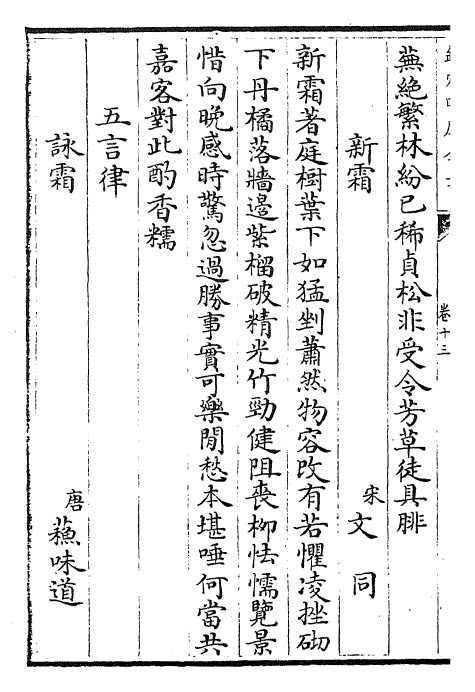 卷十三
蕪絶繁林紛已稀貞松非受令芳草徒具腓
新霜
宋文同
新霜著庭樹葉下如猛剉蕭然物容改有若懼凌挫砌
下丹橘落牆邉紫榴破精光竹勁健阻喪栁怯懦覽景
惜向晚感時驚忽過勝事實可樂閒愁本堪唾何當共
嘉客對此酌香糯
五言律
詠霜
唐蘓味道